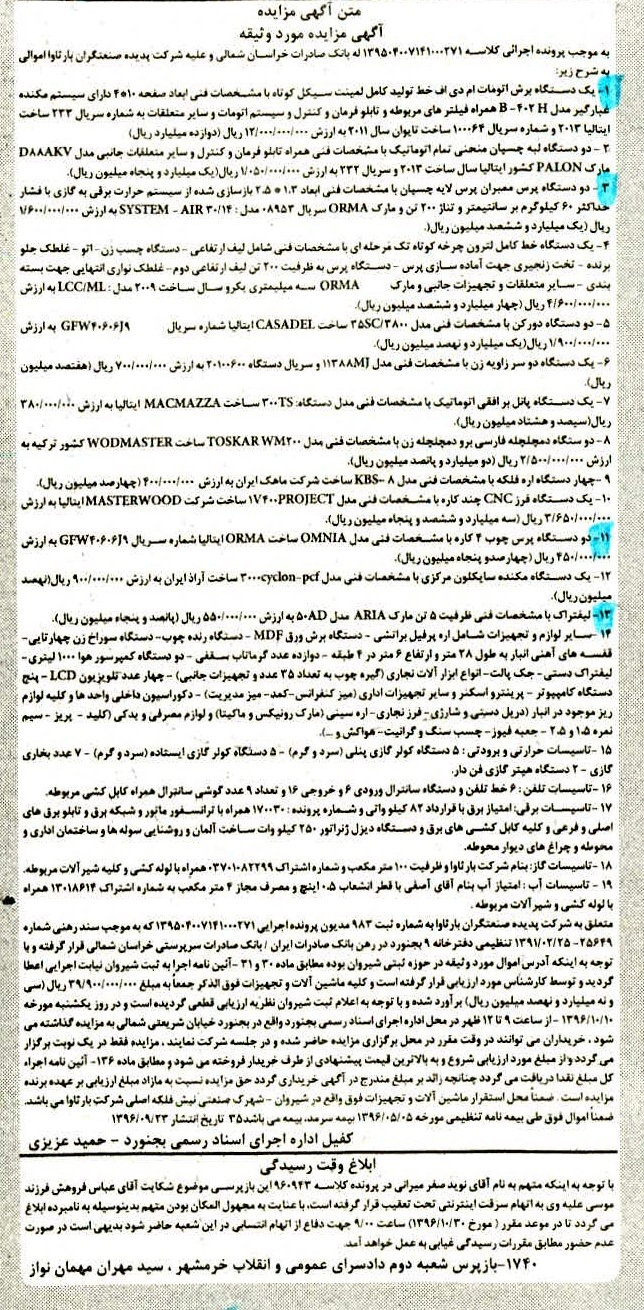 متن آگهی مزایده
آگهی مزایده مورد وثیقه
به موجب پرونده اجرائی کلاسه ۱۳۹۵۰۴۰۰۷۱۴۱۰۰۰۲۷۱ له بانک صادرات خراسان شمالی و علیه شرکت پدیده صنعتگران بارثاوا اموالی
به شرح زیر:
۱- یک دستگاه برش اتومات ام دی اف خط تولید کامل لمینت سیکل کوتاه با مشخصات فنی ابعاد صفحه ۱۰*۴ دارای سیستم مکنده
غبارگیر مدل B - ۴۰۲ H همراه فیلتر های مربوطه و تابلو فرمان و کنترل و سیستم اتومات و سایر متعلقات به شماره سریال ۲۳۳ ساخت
ایتالیا ۲۰۱۳ و شماره سریال ۱۰۰۰۶۴ ساخت تایوان سال ۲۰۱۱ به ارزش ۱۲/۰۰۰/۰۰۰/۰۰۰ ریال (دوازده میلیارد ریال)
۲ - دو دستگاه لبه چسپان منحنی تمام اتوماتیک با مشخصات فنی همراه تابلو فرمان و کنترل و سایر متعلقات جانبی مدل D۸۸AKV
مارک PALON کشور ایتالیا سال ساخت ۲۰۱۳ و سریال ۲۳۲ به ارزش ۱/۰۵۰/۰۰۰/۰۰۰ ریال(یک میلیارد و پنجاه میلیون ریال).
۳ - دو دستگاه پرس ممبران پرس لایه چسپان با مشخصات فنی ابعاد ۱.۳ * ۲.۵ بازسازی شده از سیستم حرارت برقی به گازی با فشار
حداکثر ۶۰ کیلوگرم بر سانتیمتر و تناژ ۲۰۰ تن و مارک ORMA سریال ۰۸۹۵۳ مدل : SYSTEM - AIR ۳۰/۱۴ به ارزش ۱/۶۰۰/۰۰۰/۰۰۰
ریال (یک میلیارد و ششصد میلیون ریال).
۴- یک دستگاه خط کامل لترون چرخه کوتاه تک مرحله ای با مشخصات فنی شامل لیف ارتفاعی - دستگاه چسب زن - اتو - غلطک جلو
برنده - تخت زنجیری جهت آماده سازی پرس - دستگاه پرس به ظرفیت ۲۰۰ تن لیف ارتفاعی دوم- غلطک نواری انتهایی جهت بسته
بندی - سایر متعلقات و تجهیزات جانبی و مارک ORMA سه میلیمتری یکرو سال ساخت ۲۰۰۹ مدل : LCC/ML به ارزش
۴/۶۰۰/۰۰۰/۰۰۰ ریال (چهار میلیارد و ششصد میلیون ریال).
۵- دو دستگاه دورکن با مشخصات فنی مدل ۳۵SC/۳۸۰۰ ساخت CASADEL ایتالیا شماره سریال GFW۴۰۶۰۶J۹ به ارزش
۱/۹۰۰/۰۰۰/۰۰۰ ریال(یک میلیارد و نهصد میلیون ریال).
۶- یک دستگاه دو سر زاویه زن با مشخصات فنی مدل ۱۱۳۸۸MJ و سریال دستگاه ۲۰۱۰۰۶۰۰ به ارزش ۷۰۰/۰۰۰/۰۰۰ ریال (هفتصد میلیون
ریال).
۷- یک دستگاه پانل بر افقی اتوماتیک با مشخصات فنی مدل دستگاه: ۳۰۰TS ساخت MACMAZZA ایتالیا به ارزش ۳۸۰/۰۰۰/۰۰۰
ریال(سیصد و هشتاد میلیون ریال).
۸- دو دستگاه دمچلچله فارسی برو دمچلچله زن با مشخصات فنی مدل TOSKAR WM۲۰۰ ساخت WODMASTER کشور ترکیه به
ارزش ۲/۵۰۰/۰۰۰/۰۰۰ ریال (دو میلیارد و پانصد میلیون ریال).
۹ -چهار دستگاه اره فلکه با مشخصات فنی مدل KBS-۸ ساخت شرکت ماهک ایران به ارزش ۴۰۰/۰۰۰/۰۰۰ (چهارصد میلیون ریال).
۱۰- یک دستگاه فرز CNC چند کاره با مشخصات فنی مدل ۱۷۴۰۰PROJECT ساخت شرکت MASTERWOOD ایتالیا به ارزش
۳/۶۵۰/۰۰۰/۰۰۰ ریال (سه میلیارد و ششصد و پنجاه میلیون ریال).
۱۱- دو دستگاه پرس چوب ۴ کاره با مشخصات فنی مدل OMNIA ساخت ORMA ایتالیا شماره سریال GFW۴۰۶۰۶J۹ به ارزش
۴۵۰/۰۰۰/۰۰۰ ریال (چهارصدو پنجاه میلیون ریال).
۱۲- یک دستگاه مکنده سایکلون مرکزی با مشخصات فنی مدل ۳۰۰۰cyclon-pcf ساخت آراذ ایران به ارزش ۹۰۰/۰۰۰/۰۰۰ ریال(نهصد
میلیون ریال).
۱۳- لیفتراک با مشخصات فنی ظرفیت ۵ تن مارک ARIA مدل ۵۰AD به ارزش ۵۵۰/۰۰۰/۰۰۰ ریال (پانصد و پنجاه میلیون ریال).
۱۴ -سایر لوازم و تجهیزات شامل اره پرفیل براتشی - دستگاه برش ورق MDF - دستگاه رنده چوب- دستگاه سوراخ زن چهارتایی-
قفسه های آهنی انبار به طول ۲۸ متر و ارتفاع ۶ متر در ۴ طبقه - دوازده عدد گرماتاب سقفی - دو دستگاه کمپرسور هوا ۱۰۰۰ لیتری-
لیفتراک دستی- جک پالت- انواع ابزار آلات نجاری (گیره چوب به تعداد ۳۵ عدد و تجهیزات جانبی) - چهار عدد تلویزیون LCD - پنج
دستگاه کامپیوتر - پرینترو اسکنر و سایر تجهیزات اداری (میز کنفرانس-کمد- میز مدیریت) - دکوراسیون داخلی واحد ها و کلیه لوازم
ریز موجود در انبار (دریل دستی و شارژی- فرز نجاری- اره سینی (مارک رونیکس و ماکیتا) و لوازم مصرفی و یدکی (کلید - پریز - سیم
نمره ۱.۵ و ۲.۵ - جعبه فیوز- چسب سنگ و گرانیت- هواکش و ...).
۱۵ - تاسیسات حرارتی و برودتی : ۵ دستگاه کولر گازی پنلی (سرد و گرم) - ۵ دستگاه کولر گازی ایستاده (سرد و گرم) - ۷ عدد بخاری
گازی - ۲ دستگاه هیتر گازی فن دار.
۱۶ - تاسیسات تلفن : ۶ خط تلفن و دستگاه سانترال ورودی ۶ و خروجی ۱۶ و تعداد ۹ عدد گوشی سانترال همراه کابل کشی مربوطه.
۱۷ -تاسیسات برقی: امتیاز برق با قرارداد ۸۲ کیلو واتی و شماره پرونده : ۱۷۰۰۳۰ همراه با ترانسفور ماتور و شبکه برق و تابلو برق های
اصلی و فرعی و کلیه کابل کشی های برق و دستگاه دیزل ژنراتور ۲۵۰ کیلو وات ساخت آلمان و روشنایی سوله ها و ساختمان اداری و
محوطه و چراغ های دیوار محوطه.
۱۸ -تاسیسات گاز: بنام شرکت بارثاوا و ظرفیت ۱۰۰ متر مکعب و شماره اشتراک ۰۳۷۰۱۰۸۲۲۹۹ همراه با لوله کشی و کلیه شیر آلات مربوطه.
۱۹ - تاسیسات آب : امتیاز آب بنام آقای آصفی با قطر انشعاب ۰.۵ اینچ و مصرف مجاز ۴ متر مکعب به شماره اشتراک ۱۳۰۱۸۶۱۴ همراه
با لوله کشی و شیر آلات مربوطه .
متعلق به شرکت پدیده صنعتگران بارثاوا به شماره ثبت ۹۸۳ مدیون پرونده اجرایی ۱۳۹۵۰۴۰۰۷۱۴۱۰۰۰۲۷۱ که به موجب سند رهنی شماره
۲۵۶۴۹- ۱۳۹۱/۰۲/۲۵ تنظیمی دفترخانه ۹ بجنورد در رهن بانک صادرات ایران / بانک صادرات سرپرستی خراسان شمالی قرار گرفته و با
توجه به اینکه آدرس اموال مورد وثیقه در حوزه ثبتی شیروان بوده مطابق ماده ۳۰ و ۳۱ -آئین نامه اجرا به ثبت شیروان نیابت اجرایی اعطا
گردید و توسط کارشناس مورد ارزیابی قرار گرفته است و کلیه ماشین آلات و تجهیزات فوق الذکر جمعاً به مبلغ ۳۹/۹۰۰/۰۰۰/۰۰۰ ریال (سی
و نه میلیارد و نهصد میلیون ریال) برآورد شده و با توجه به اعلام ثبت شیروان نظریه ارزیابی قطعی گردیده است و در روز یکشنبه مورخه
۱۳۹۶/۱۰/۱۰ - از ساعت ۹ تا ۱۲ ظهر در محل اداره اجرای اسناد رسمی بجنورد واقع در بجنورد خیابان شریعتی شمالی به مزایده گذاشته می
شود ، خریداران می توانند در وقت مقرر در محل برگزاری مزایده حاضر شده و در جلسه شرکت نمایند ، مزایده فقط در یک نوبت برگزار
می گردد واز مبلغ مورد ارزیابی شروع و به بالاترین قیمت پیشنهادی از طرف خریدار فروخته می شود و مطابق ماده ۱۳۶- آئین نامه اجراء
کل مبلغ نقدا دریافت می گردد چنانچه زائد بر مبلغ مندرج در آگهی خریداری گردد حق مزایده نسبت به مازاد مبلغ ارزیابی بر عهده برنده
مزایده است . ضمناً محل استقرار ماشین آلات و تجهیزات فوق واقع در شیروان - شهرک صنعتی نبش فلکه اصلی شرکت بارثاوا می باشد.
ضمناً اموال فوق طی بیمه نامه تنظیمی مورخه ۱۳۹۶/۰۵/۰۵ بیمه سرمد، بیمه می باشد ۳۵ تاریخ انتشار ۱۳۹۶/۰۹/۲۳
کفیل اداره اجرای اسناد رسمی بجنورد - حمید عزیزی
ابلاغ وقت رسیدگی
با توجه به اینکه متهم به نام آقای نوید صفر میرانی در پرونده کلاسه ۹۶۰۹۴۳ این بازپرسی موضوع شکایت آقای عباس فروهش فرزند
موسی علیه وی به اتهام سرقت اینترنتی تحت تعقیب قرار گرفته است، با عنایت به مجهول المکان بودن متهم بدینوسیله به نامبرده ابلاغ
می گردد تا در موعد مقرر ( مورخ ۱۳۹۶/۱۰/۳۰) ساعت ۹/۰۰ جهت دفاع از اتهام انتسابی در این شعبه حاضر شود بدیهی است در صورت
عدم حضور مطابق مقررات رسیدگی غیابی به عمل خواهد آمد.
۱۷۴۰-بازپرس شعبه دوم دادسرای عمومی و انقلاب خرمشهر ، سید مهران مهمان نواز